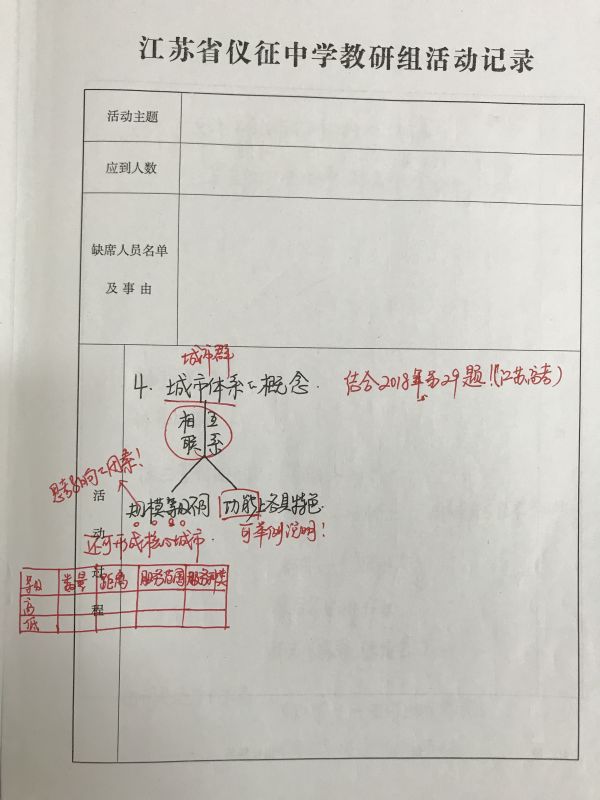 江苏省仪征中学教研组活动记录
活动主题
应到人数
缺席人员名单
及事由
城市群
4. 城市体系的概念. 结合2018年第29题!(江苏高考)
相互
联系
思考影响的因素!
规模等级不同 功能上各具特色.
还可形成核心城市. 可举例说明!
活动过程
等级 数量 距离 服务范围 服务种类
高
低